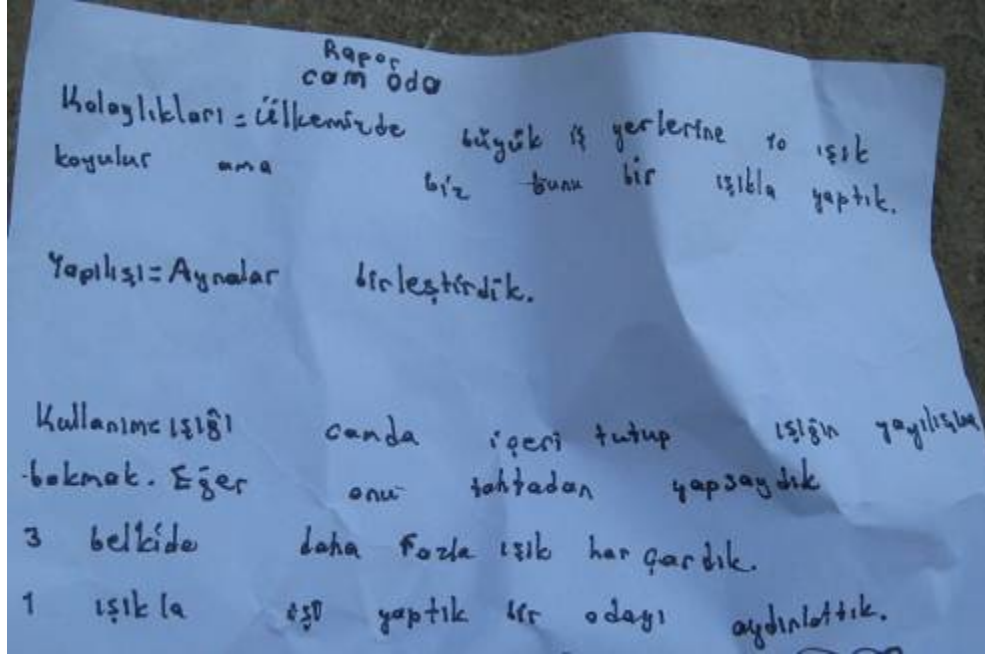 Rapor
cam oda
Kolaylıkları = Ülkemizde büyük iş yerlerine 10 ışık
koyulur ama biz bunu bir ışıkla yaptık.
Yapılışı = Aynalar birleştirdik.
Kullanımı ışığı camda içeri tutup ışığın yayılışına
bakmak. Eğer onu tahtadan yapsaydık
3 belkide daha fazla ışık harçardık.
1 ışıkla yaptık bir odayı aydınlattık.